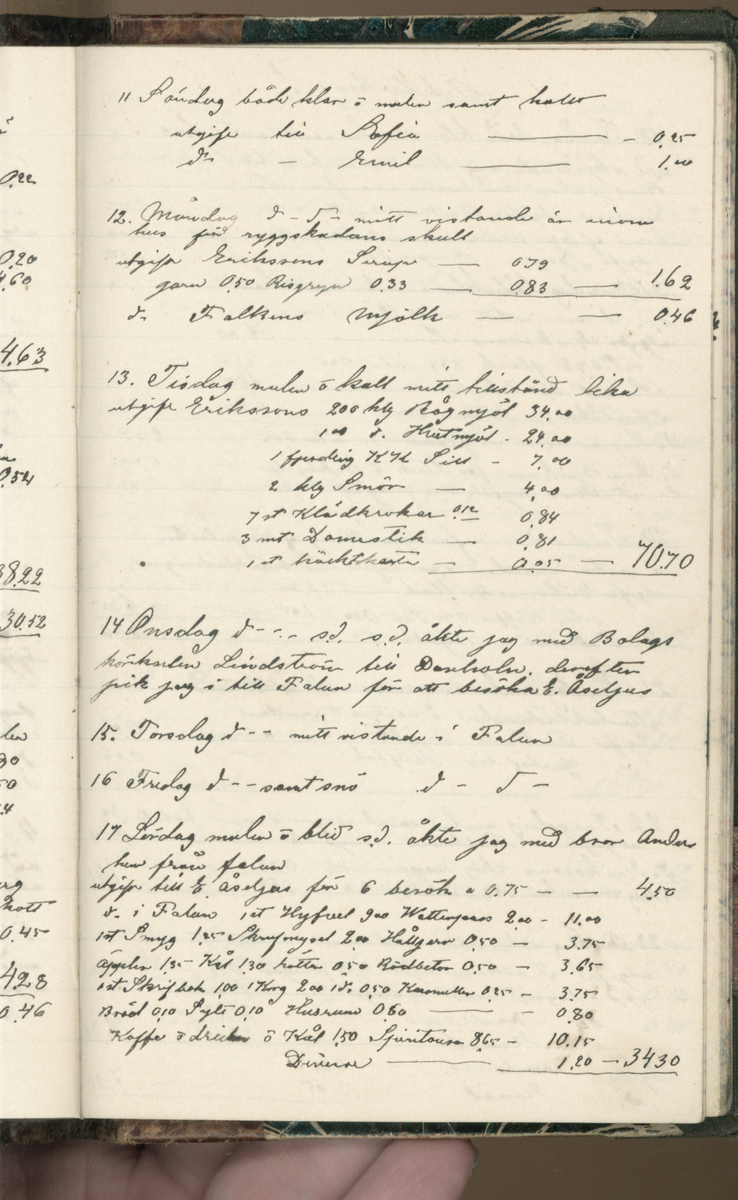 11 Söndag både klar o mulen samt kallt
utgift till Sofia — - 0,25
d:o - Emil — 1.00
12. Måndag d - d - mitt vistande är inom
hus för ryggskadans skull
utgift Erikssons Sirap — 0.79
garn 0.50 Risgryn 0.33 — 0.83 — 1.62
d:o Falkens Mjölk — — 0.46
13. Tisdag mulen o kallt mitt tillstånd lika
utgift Erikssons 200 klg Rågmjöl 34,00
100 d:o Hvetmjöl - 24,00
1 fjerding Sill - 7,00
2 klg Smör — 4,00
7 st Klädkrokar 0.12 0,84
3 mt Domestik — 0,81
1 st — 0.05 — 70.70
14 Onsdag d - - - s.d. s.d. åkte jag med Bolags
körkarlen Lindström till Danholn. derefter
gik jag i till Falun för att besöka E. Åseljus
15. Torsdag d - - mitt vistande i Falun
16 Fredag d - - samt snö d - d -
17 Lördag mulen o blid s.d. åkte jag med bror Anders
hem från falun
utgift till E Åseljus för 6 besök a 0.75 — — 4.50
d:o i Falun 1 st Hyfvel 9.00 Wattenpass 2.00 - 11.00
1 st Smyg 1.25 2.00 0.50 - 3.75
Äpplen 1.35 Kål 1.30 0.50 Rödbetor 0.50 - 3.65
1 st Skrifbok 1.00 1 Korg 2.00 1 d:o 0.50 Karameller 0.25 - 3.75
Bröd 0.10 Sylt 0.10 Husrum 0.60 — - 0.80
Kaffe o dricka o Kål 1.50 Spirituosa 8.65 - 10.15
Diverse — 1.20 — 34.30